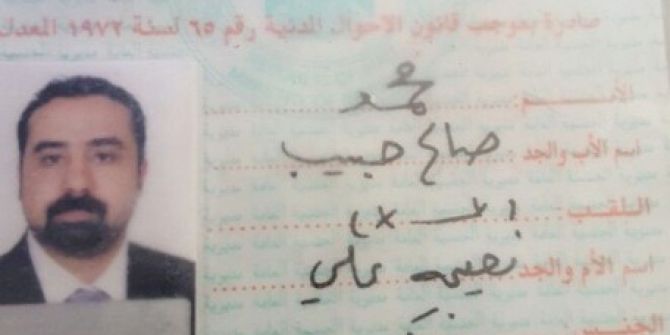 صادرة بموجب قانون الاحوال المدنية رقم ٦٥ لسنة ١٩٧٢ المعدل
الاســـم: محمد
اسم الأب والجد: صالح حبيب
اللقب: (×)
اسم الأم والجد: نعيمه علي